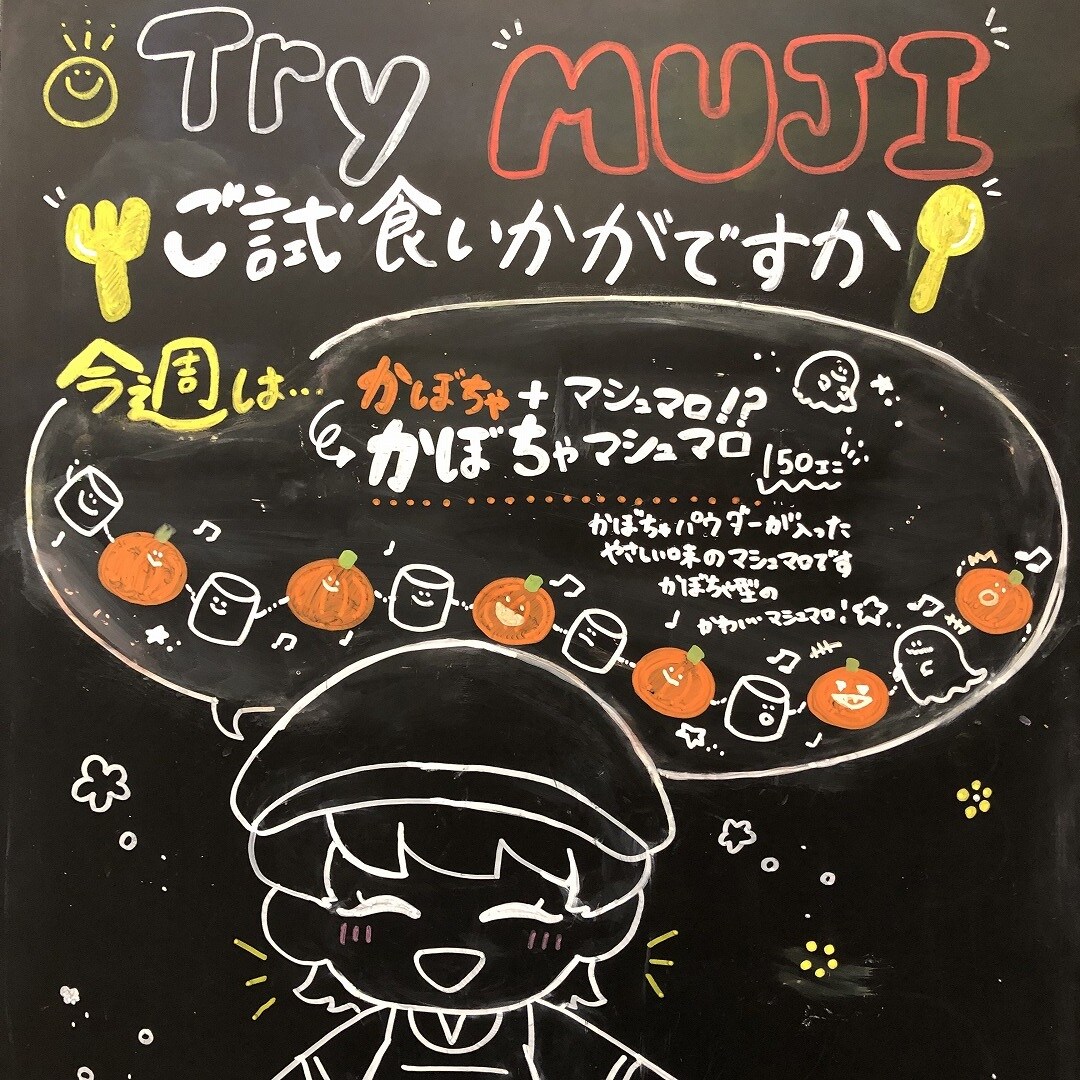 Try MUJI
ご試食いかがですか
今週は…
かぼちゃ+マシュマロ!?
かぼちゃマシュマロ 150エン
かぼちゃパウダーが入った
やさしい味のマシュマロです
かぼちゃ型の
かわいいマシュマロ!